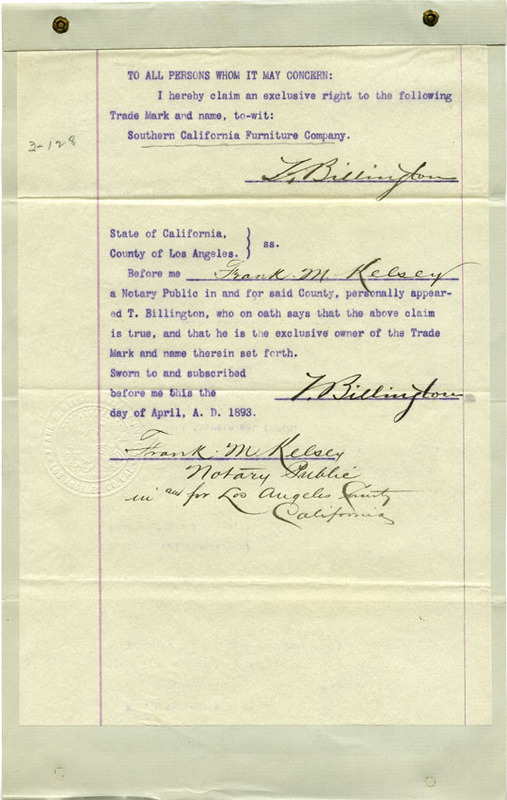 TO ALL PERSONS WHOM IT MAY CONCERN:
I hereby claim an exclusive right to the following
Trade Mark and name, to-wit:
Southern California Furniture Company.
3-128
T. Billington
State of California,
County of Los Angeles. } ss.
Before me Frank. M Kelsey
a Notary Public in and for said County, personally appear-
ed T. Billington, who on oath says that the above claim
is true, and that he is the exclusive owner of the Trade
Mark and name therein set forth.
Sworn to and subscribed
before me this the T. Billington
day of April, A. D. 1893.
Frank. M Kelsey
Notary Public
in and for Los Angeles County
California